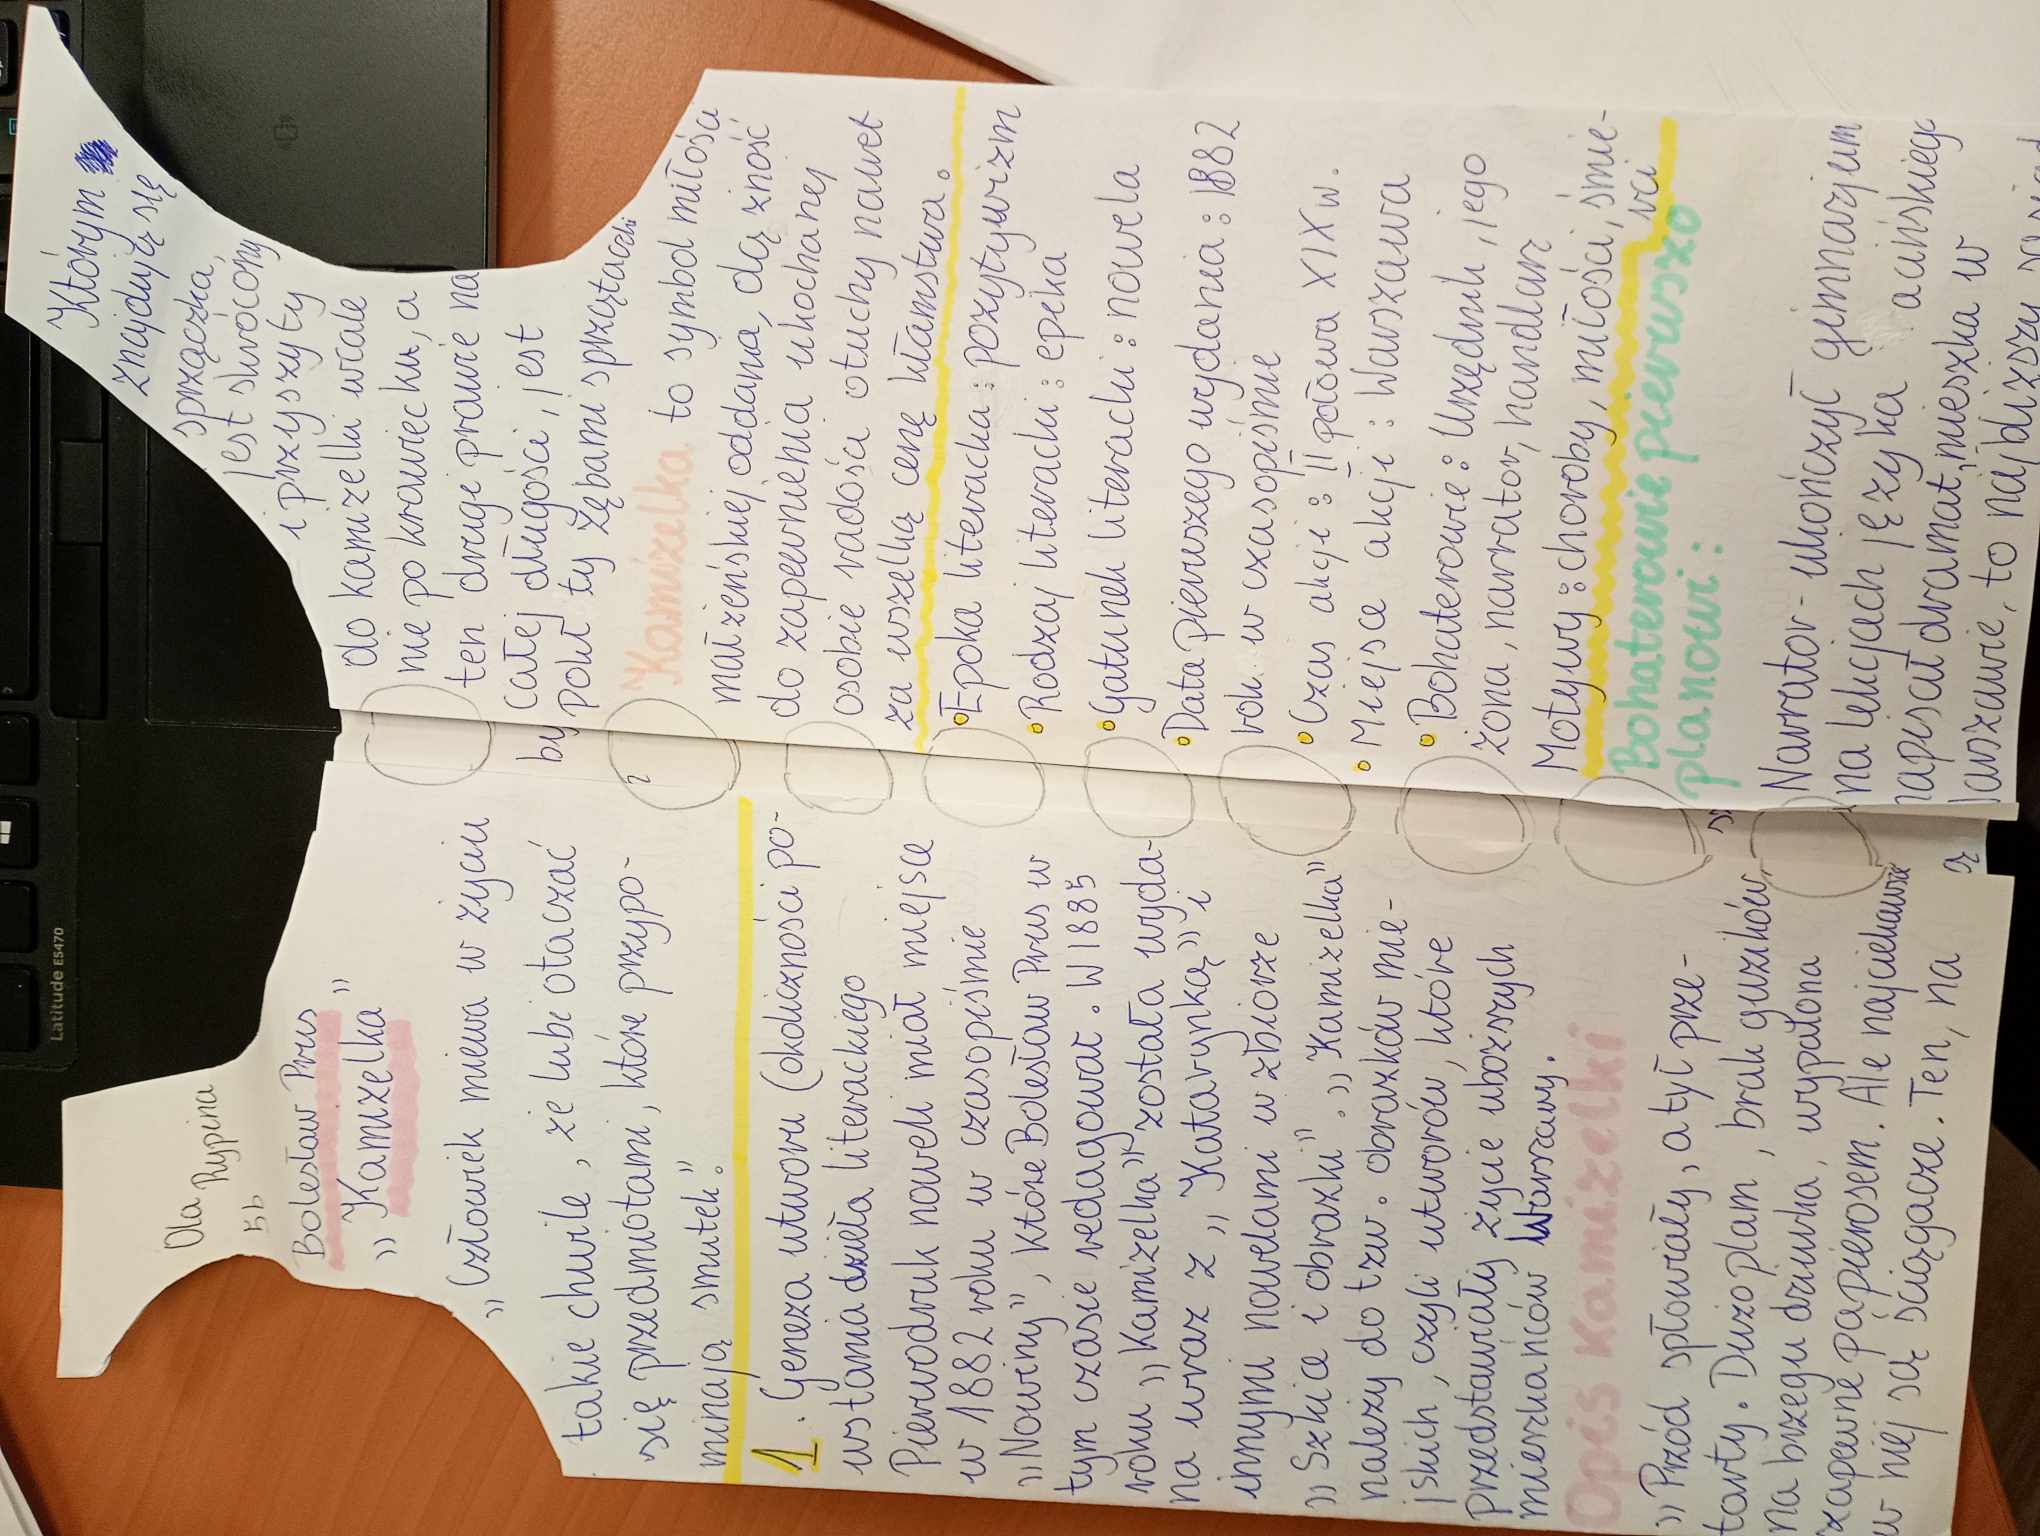 Ola
Rypina
5b
Bolesław Prus
„Kamizelka”
„Człowiek miewa w życiu
takie chwile, że lubi otaczać
się przedmiotami, które przypo-
minają smutek”.
1. Geneza utworu (okoliczności po-
wstania dzieła literackiego
Pierwodruk noweli miał miejsce
w 1882 roku w czasopiśmie
„Nowiny”, które Bolesław Prus w
tym czasie redagował. W 1885
roku „Kamizelka” została wyda-
na wraz z „Katarynką” i
innymi nowelami w zbiorze
„Szkice i obrazki”. „Kamizelka”
należy do tzw. obrazków mie-
jskich, czyli utworów, które
przedstawiały życie uboższych
mieszkańców Warszawy.
Opis Kamizelki
„Przód spłowiały, a tył prze-
tarty. Dużo plam, brak guzików,
na brzegu dziurka, wypalona
zapewne papierosem. Ale najciekawsze
w niej są ściągacze. Ten, na
Którym
znajduję się
sprzączka,
jest skrócony
i przyszyty
do kamizelki wcale
nie po krawiecku, a
ten drugi prawie na
całej długości, jest
pokłuty zębami sprzączki
"Kamizelka to symbol miłości
małżeńskiej, oddania, dążność
do zapewnienia ukochanej
osobie radości otuchy nawet
za wszelką cenę kłamstwa.
Epoka literacka: pozytywizm
Rodzaj literacki: epika
Gatunek literacki: nowela
Data pierwszego wydania: 1882
rok. w czasopiśmie
Czas akcji: II połowa XIX w.
Miejsce akcji: Warszawa
Bohaterowie: Urzędnik, jego
żona, narrator, handlarz
Motywy: choroby, miłości, śmie-
rci
Bohaterowie pierwszo
planowi:
Narrator - ukończył gimnazjum
na lekcjach języka acińskieg
napisał dramat, mieszka w
arszawie, to najbliższy
Latitude E5470